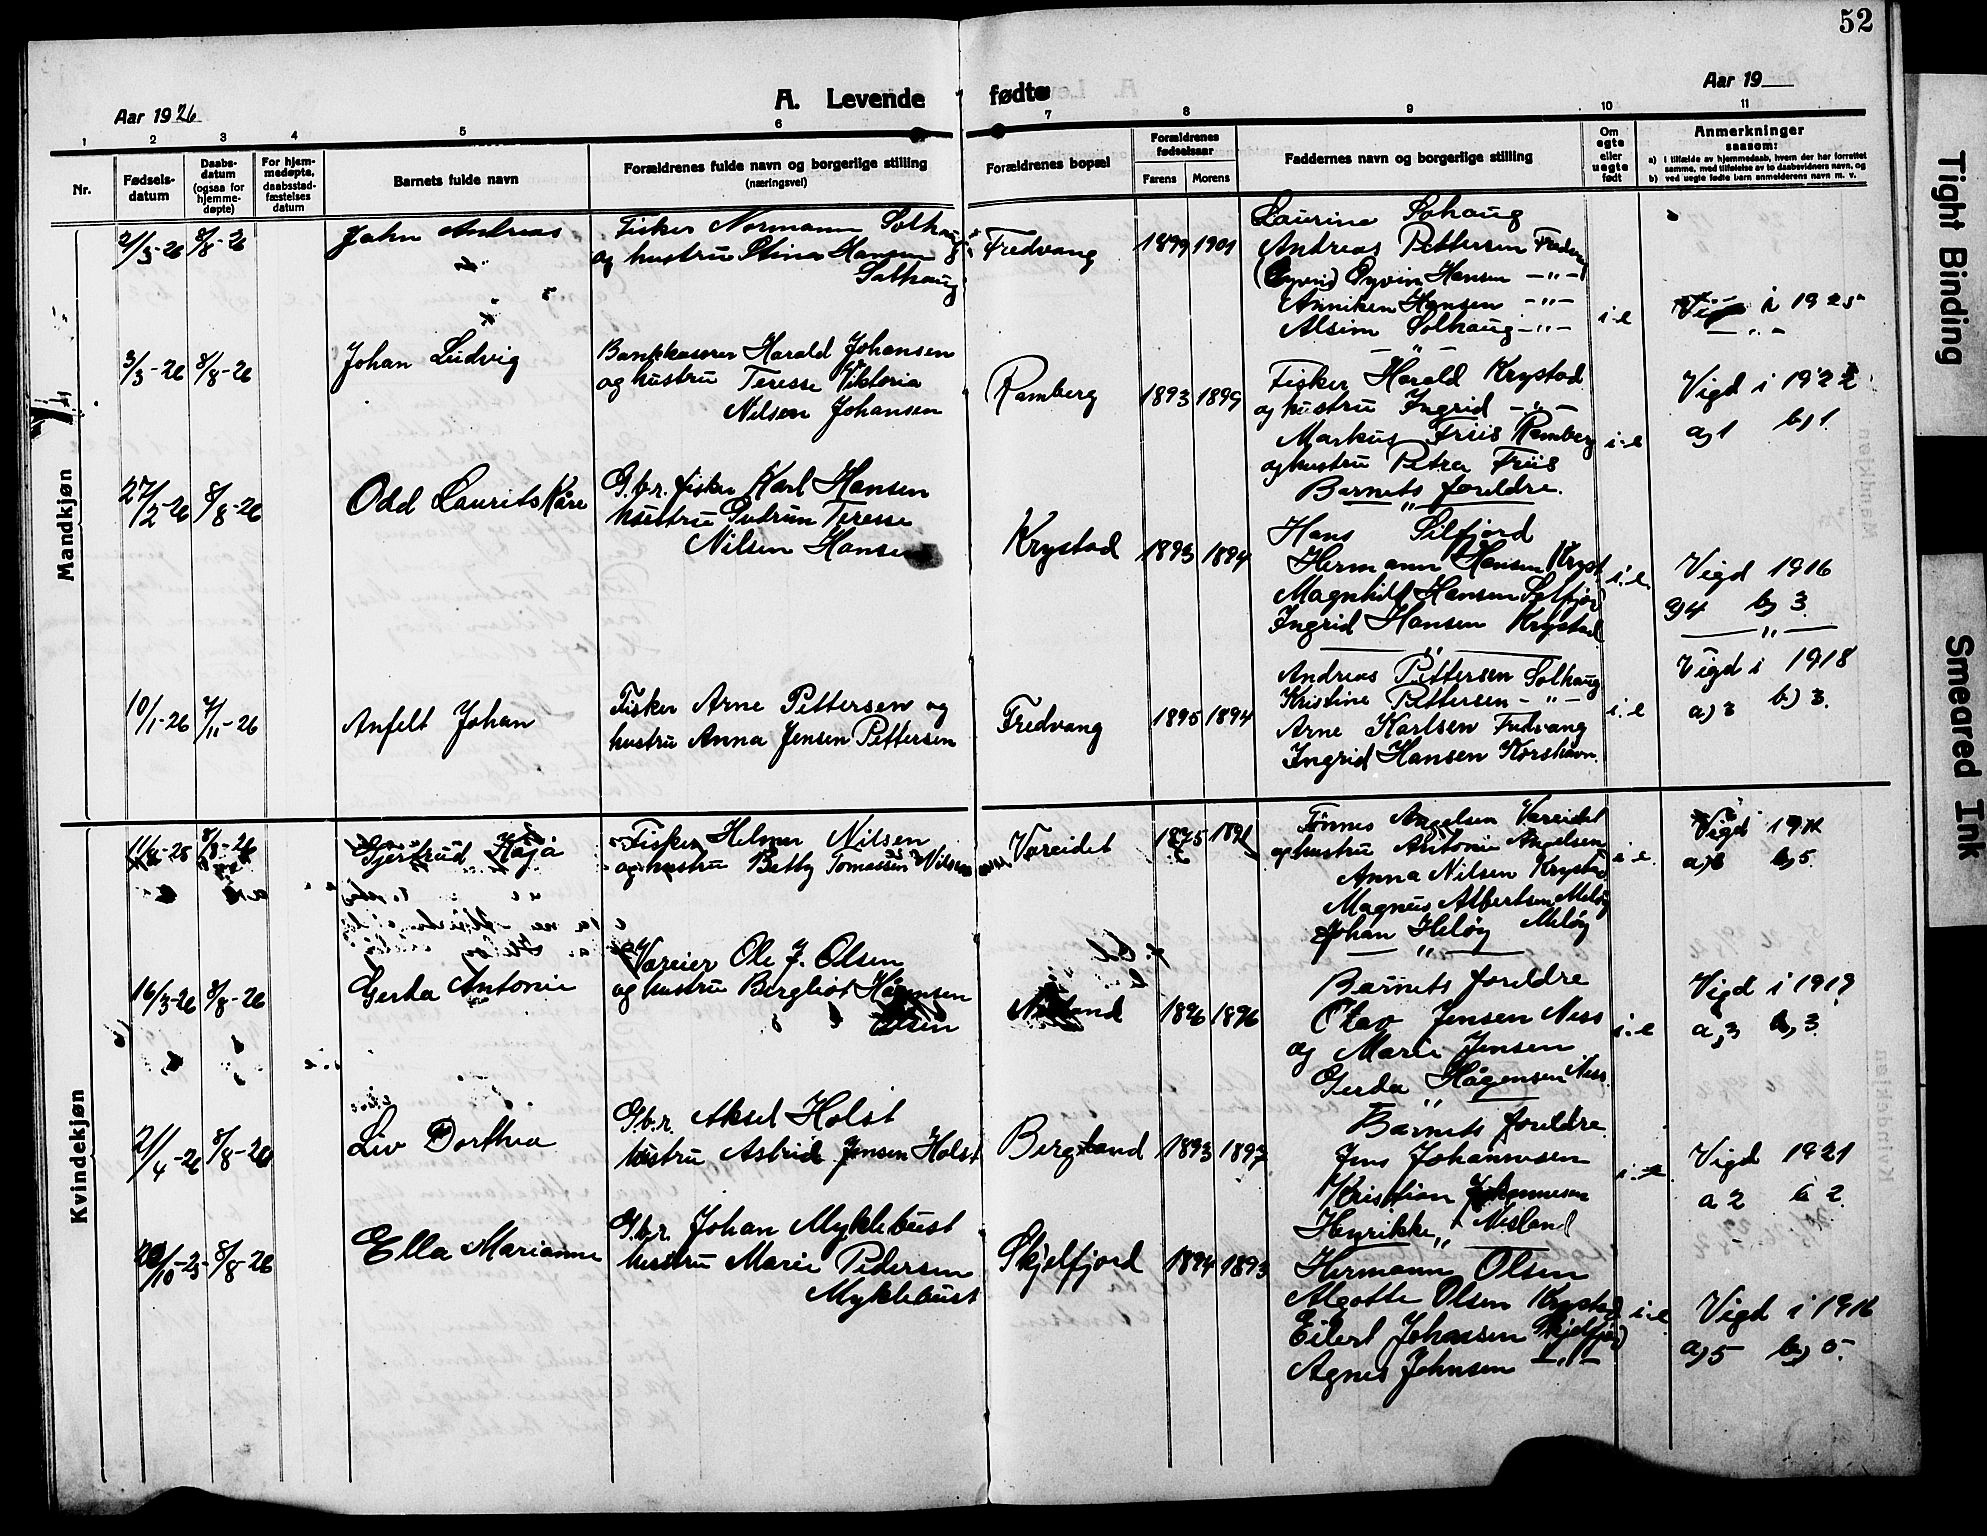 52
Aar 1926
A. Levende fødte
Aar 19
1 2 3 4 5 6 7 8 9 10 11
Nr.
Fødsels-
datum
Daabs-
datum
(ogsaa for
hjemme-
døpte)
For hjem-
medøpte,
daabsstad-
fæstelses
datum
Barnets fulde navn
Forældrenes fulde navn og borgerlige stilling
(næringsvei)
Forældrenes bopæl
Forældrenes
fødselsaar
Farens Morens
Faddernes navn og borgerlige stilling
Om
egte
eller
uegte
født
Anmerkninger
saasom:
a) i tilfælde av hjemmedaab, hvem der har forrettet
samme, med tilføielse av to daabsvidners navn, og
b) ved uegte fødte barn anmelderens navn m. v.
Mandkjøn
2/3-26 8/8-26
John Andreas
Fisker Normann Solhaug
og hustru Stina Hansen
Solhaug
Fredvang
1899 1901
Laurine Sohaug
Andreas Pettersen
(Øyvin) Øyvin Hansen -"-
Anniken Hansen -"-
Alsim Solhaug -"-
i.e
i 1925
3/3-26 8/8-26
Johan Ludvig
Bankkaserer Harald Johansen
og hustru Teresse Viktoria
Nilsen Johansen
Ramberg
1893 1899
Fisker Harald Krystad
og hustru Ingrid -"-
Markus Friis Ramberg
og hustru Petra Friis
Barnets foreldre.
i.e
Vigd i 1922
a,1 b,1
27/2-26 8/8-26
Odd Laurits Kåre
G.b.r. fisker Karl Hansen
hustru Gudrun Teresse
Nilsen Hansen
Krystad
1893 1894
Hans Silfjord
Hermann Hansen Kryst
Magnhild Hansen Selfjor
Ingrid Hansen Krystad
i.e
Vigd 1916
a,4 b,3
10/1-26 7/11-26
Anfelt Johan
Fisker Arne Pettersen og
hustru Anna Jensen Pettersen
Fredvang
1895 1894
Andreas Pettersen Solhaug
Kristine Pettersen -"-
Arne Karlsen Fredvang
Ingrid Hansen Korshavn.
i.e
Vigd i 1918
a) 3 b) 3.
Kvindekjøn
8/8-26
Gjertrud Kaja
Fisker Helmer Nilsen
og hustru Betty Tomassen Nilsen
Vareidet
1875
Tønnes Angelsen Vareidet
og hustru Antonie Angelsen
Anna Nilsen Krystad
Magnus Albertsen Meløy
Johan Heløy Meløy
i.e.
Vigd
b,5.
16/3-26 8/8-26
Gerda Antonie
Væreier Ole J. Olsen
og hustru Bergliot Hågensen
Olsen
1896 1896
Barnets foreldre
Olav Jensen Ness
og Marie Jensen
Gerda Hågensen Ness.
i.e
Vigd i 1919
a,3 b,3
2/4-26 8/8-26
Liv Dorthea
G.b.r. Aksel Holst
hustru Astrid Jensen Holst
Bergland
1893 1897
Barnets foreldre.
Jens Johannesen
Kristian Johannesen
Henrikke " Nesland
i.e
Vigd 1921
a 2 b 2
/10-25 8/8-26
Ella Marianne
G.b.r. Johan Myklebust
hustru Marie Pedersen
Myklebust
Skjelfjord
1894 1893
Hermann Olsen
Algotte Olsen Krystad
Eilert Johnsen Skjelfjor
Agnes Johnsen -"-
i.e
Vigd i 1916
a,5 b,5.
Tight Binding
Smeared Ink